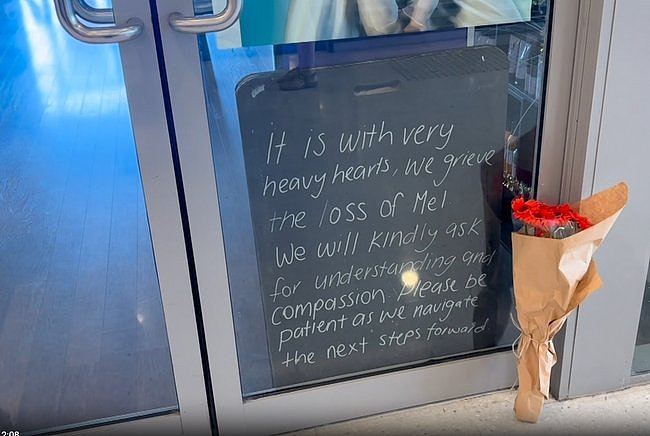 It is with very
heavy hearts, we grieve
the loss of Mel.
We will kindly ask
for understanding and
compassion. Please be
patient as we navigate
the next steps forward
2:08